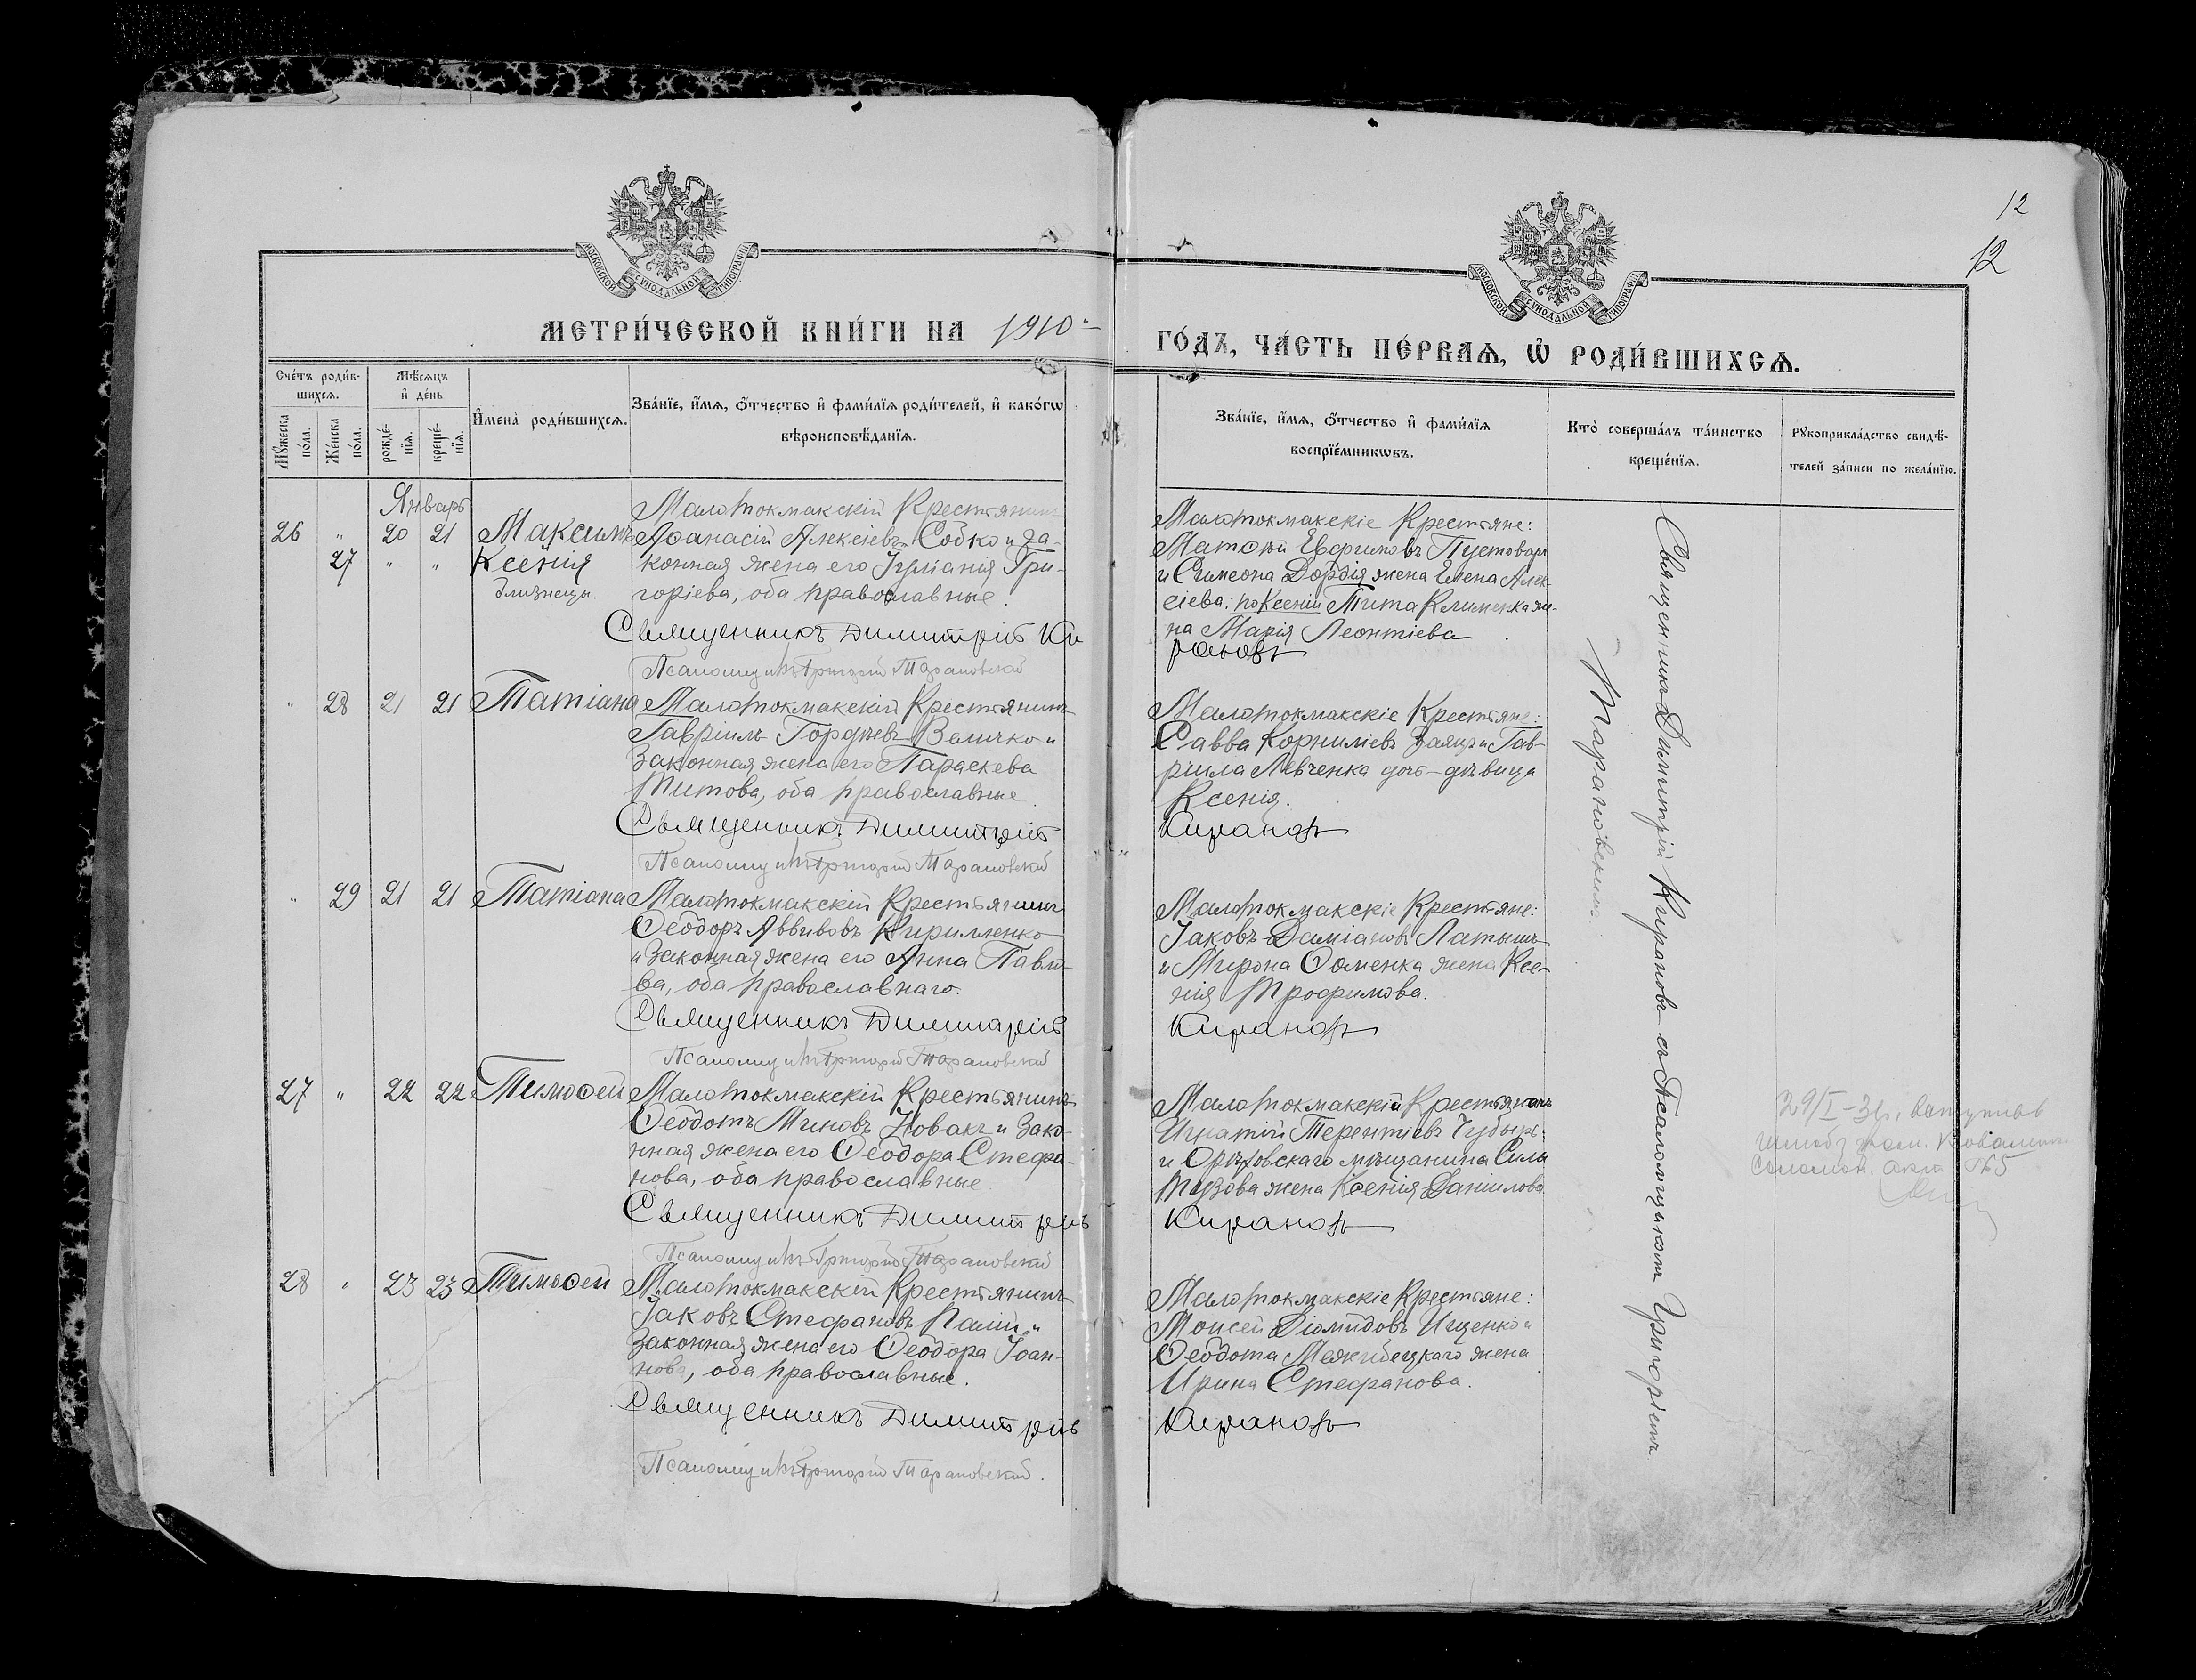 12
12
МОСКОВСКОЙ СѴНОДАЛЬНОЙ ТИПОГРАФІИ
МОСКОВСКОЙ СѴНОДАЛЬНОЙ ТИПОГРАФІИ
МЕТРИ́ЧЕСКОЙ КНИ́ГИ НА 1910
ГО́ДЪ, ЧА́СТЬ ПЕ́РВАѦ, Ѡ҆ РОДИ́ВШИХСѦ.
Сче́тъ роди́в-
шихсѧ.
Мꙋ́жеска по́ла.
Же́нска по́ла.
Мѣ́сѧцъ
и҆ де́нь
рожде́-
нїѧ.
креще́-
нїѧ.
И҆мена̀ роди́вшихсѧ.
Зва́нїе, и҆́мѧ, ѻ҆́тчество и҆ фами́лїѧ роди́телей, и҆ како́гѡ
вѣроисповѣ́данїѧ.
Зва́нїе, и҆́мѧ, ѻ҆́тчество и҆ фами́лїѧ
воспрїе́мникѡвъ.
Кто̀ соверша́лъ та́инство
креще́нїѧ.
Рꙋкоприкла́дство свидѣ́-
телей за́писи по жела́нїю.
Январь
26 " 20 21 Максимъ
27 " " Ксенія
близнецы.
Малотокмакскій Крестьянинъ
Аѳанасій Алексіевъ Собко и за-
конная жена его Іуліанія Гри-
горіева, оба православные.
Священникъ Димитрій Ки
рановъ
Псаломщикъ Григорій Тарановскій
Малотокмакскіе Крестьяне:
Матѳій Евфимовъ Пустоваръ
и Симеона Дордія жена Елена Алек-
сіева; по Ксеніи Тита Клименка же-
на Марія Леонтіева
" 28 21 21 Татіана
Малотокмакскій Крестьянинъ
Гавріилъ Гордѣевъ Величко и
законная жена его Параскева
Титова, оба православные.
Священникъ Димитрій
Кирановъ
Псаломщикъ Григорій Тарановскій
Малотокмакскіе Крестьяне:
Савва Корниліевъ Заяцъ и Гав-
ріила Левченка дочь-дѣвица
Ксенія.
" 29 21 21 Татіана
Малотокмакскій Крестьянинъ
Ѳеодоръ Аввивовъ Кирилленко
и законная жена его Анна Павло-
ва, оба православнаго.
Священникъ Димитрій
Кирановъ
Псаломщикъ Григорій Тарановскій
Малотокмакскіе Крестьяне:
Іаковъ Даміановъ Латышъ
и Мирона Ѳоменка жена Ксе-
нія Трофимова.
27 " 22 22 Тимоѳей
Малотокмакскій Крестьянинъ
Ѳеодотъ Миновъ Новакъ и зако-
нная жена его Ѳеодора Стефа-
нова, оба православные.
Священникъ Димитрій
Кирановъ
Псаломщикъ Григорій Тарановскій
Малотокмакскій Крестьянинъ
Игнатій Терентіевъ Чубырь
и Орѣховскаго мѣщанина Силы
Тузова жена Ксенія Даніилова
29/I-3
№5
28 " 23 23 Тимоѳей
Малотокмакскій Крестьянинъ
Іаковъ Стефановъ Палій и
законная жена его Ѳеодора Іоан-
нова, оба православные.
Священникъ Димитрій
Кирановъ
Псаломщикъ Григорій Тарановскій.
Малотокмакскіе Крестьяне:
Моисей Діомидовъ Ищенко и
Ѳеодота Межибецкаго жена
Ирина Стефанова.
Священникъ Димитрій Кирановъ съ Псаломщикомъ Григоріемъ
Тарановскимъ